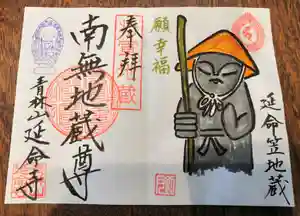 奉拝
南無地蔵尊
青林山延命寺
願幸福
延命笠地蔵